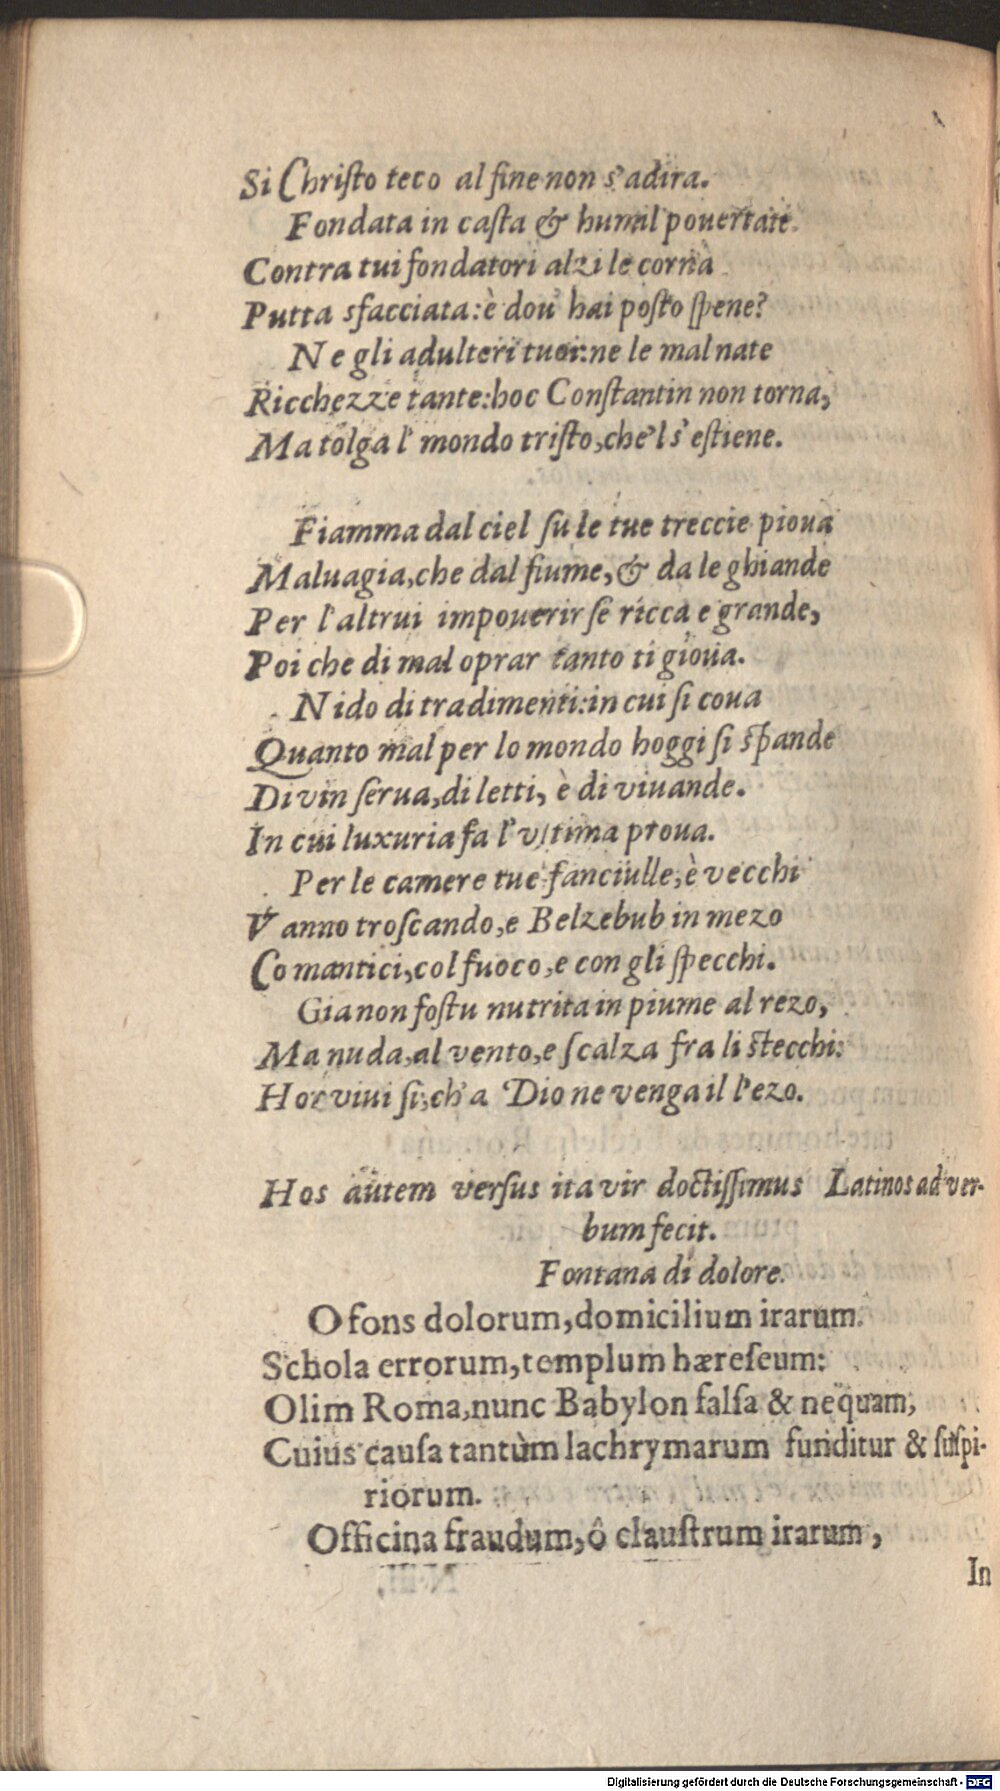 Si Chriſto teco al fine non s'adira.
Fondata in caſta & humil pouertate.
Contra tui fondatori alzi le corna
Putta sfacciata: è dou' hai poſto ſpene?
Ne gli adulteri tuoi: ne le mal nate
Ricchezze tante: hoc Conſtantin non torna,
Ma tolga l' mondo triſto, che'l s' eſtiene.
Fiamma dal ciel ſu le tue treccie pioua
Maluagia, che dal fiume, & da le ghiande
Per l'altrui impouerir ſe ricca e grande,
Poi che di mal oprar tanto ti gioua.
Nido di tradimenti: in cui ſi coua
Quanto mal per lo mondo hoggi ſi ſpande
Di vin ſerua, di letti, è di viuande.
In cui luxuria fa l'vltima proua.
Per le camere tue fanciulle, è vecchi
Vanno troſcando, e Belzebub in mezo
Co mantici, col fuoco, e con gli ſpecchi.
Gia non foſtu nutrita in piume al rezo,
Ma nuda, al vento, e ſcalza fra li ſtecchi:
Hor viui ſi; ch' a Dio ne venga il l'ezo.
Hos autem verſus ita vir doctiſſimus Latinos ad ver-
bum fecit.
Fontana di dolore.
O fons dolorum, domicilium irarum.
Schola errorum, templum hæreſeum:
Olim Roma, nunc Babylon falſa & nequam,
Cuius cauſa tantùm lachrymarum funditur & ſuſpi-
riorum.
Officina fraudum, ô clauſtrum irarum,
In
Digitalisierung gefördert durch die Deutsche Forschungsgemeinschaft - DFG